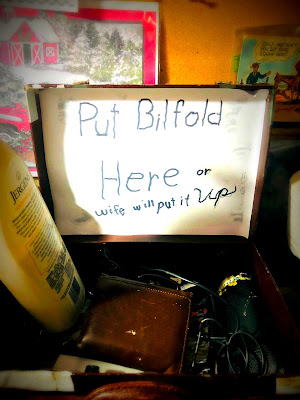 Put Bilfold
Here or
wife will put it up
JERGENS